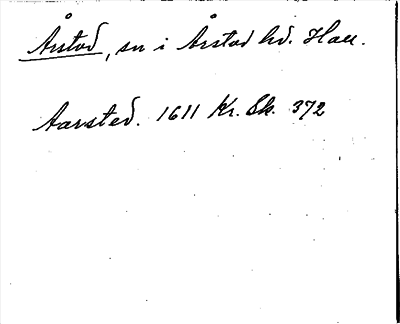 Årstad, sn i Årstad hd. Hall.
Aarsted. 1611 Kr. Sk. 372